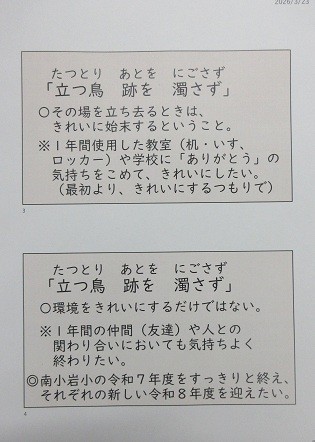 2026/3/23
たつとり　あとを　にごさず
「立つ鳥　跡を　濁さず」
○その場を立ち去るときは、
きれいに始末するということ。
※１年間使用した教室（机・いす、
ロッカー）や学校に「ありがとう」の
気持ちをこめて、きれいにしたい。
（最初より、きれいにするつもりで）
3
たつとり　あとを　にごさず
「立つ鳥　跡を　濁さず」
○環境をきれいにするだけではない。
※１年間の仲間（友達）や人との
関わり合いにおいても気持ちよく
終わりたい。
◎南小岩小の令和７年度をすっきりと終え、
それぞれの新しい令和８年度を迎えたい。
4